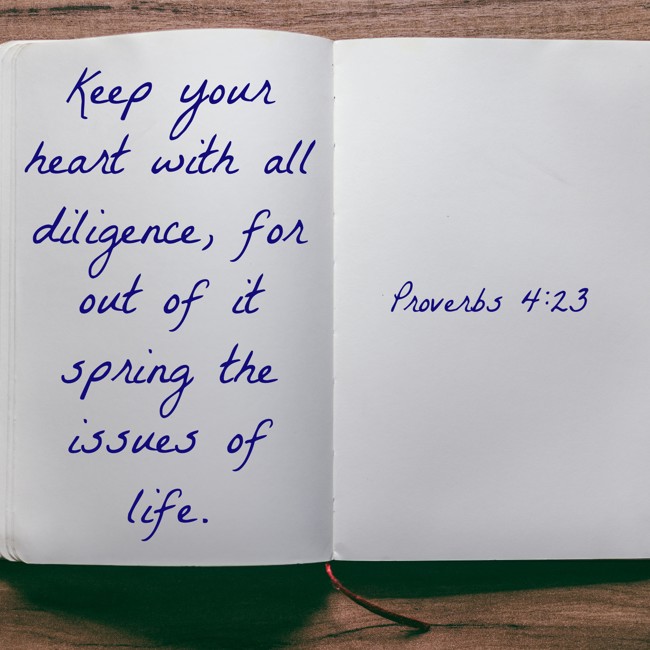 Keep your
heart with all
diligence, for
out of it
spring the
issues of
life.
Proverbs 4:23